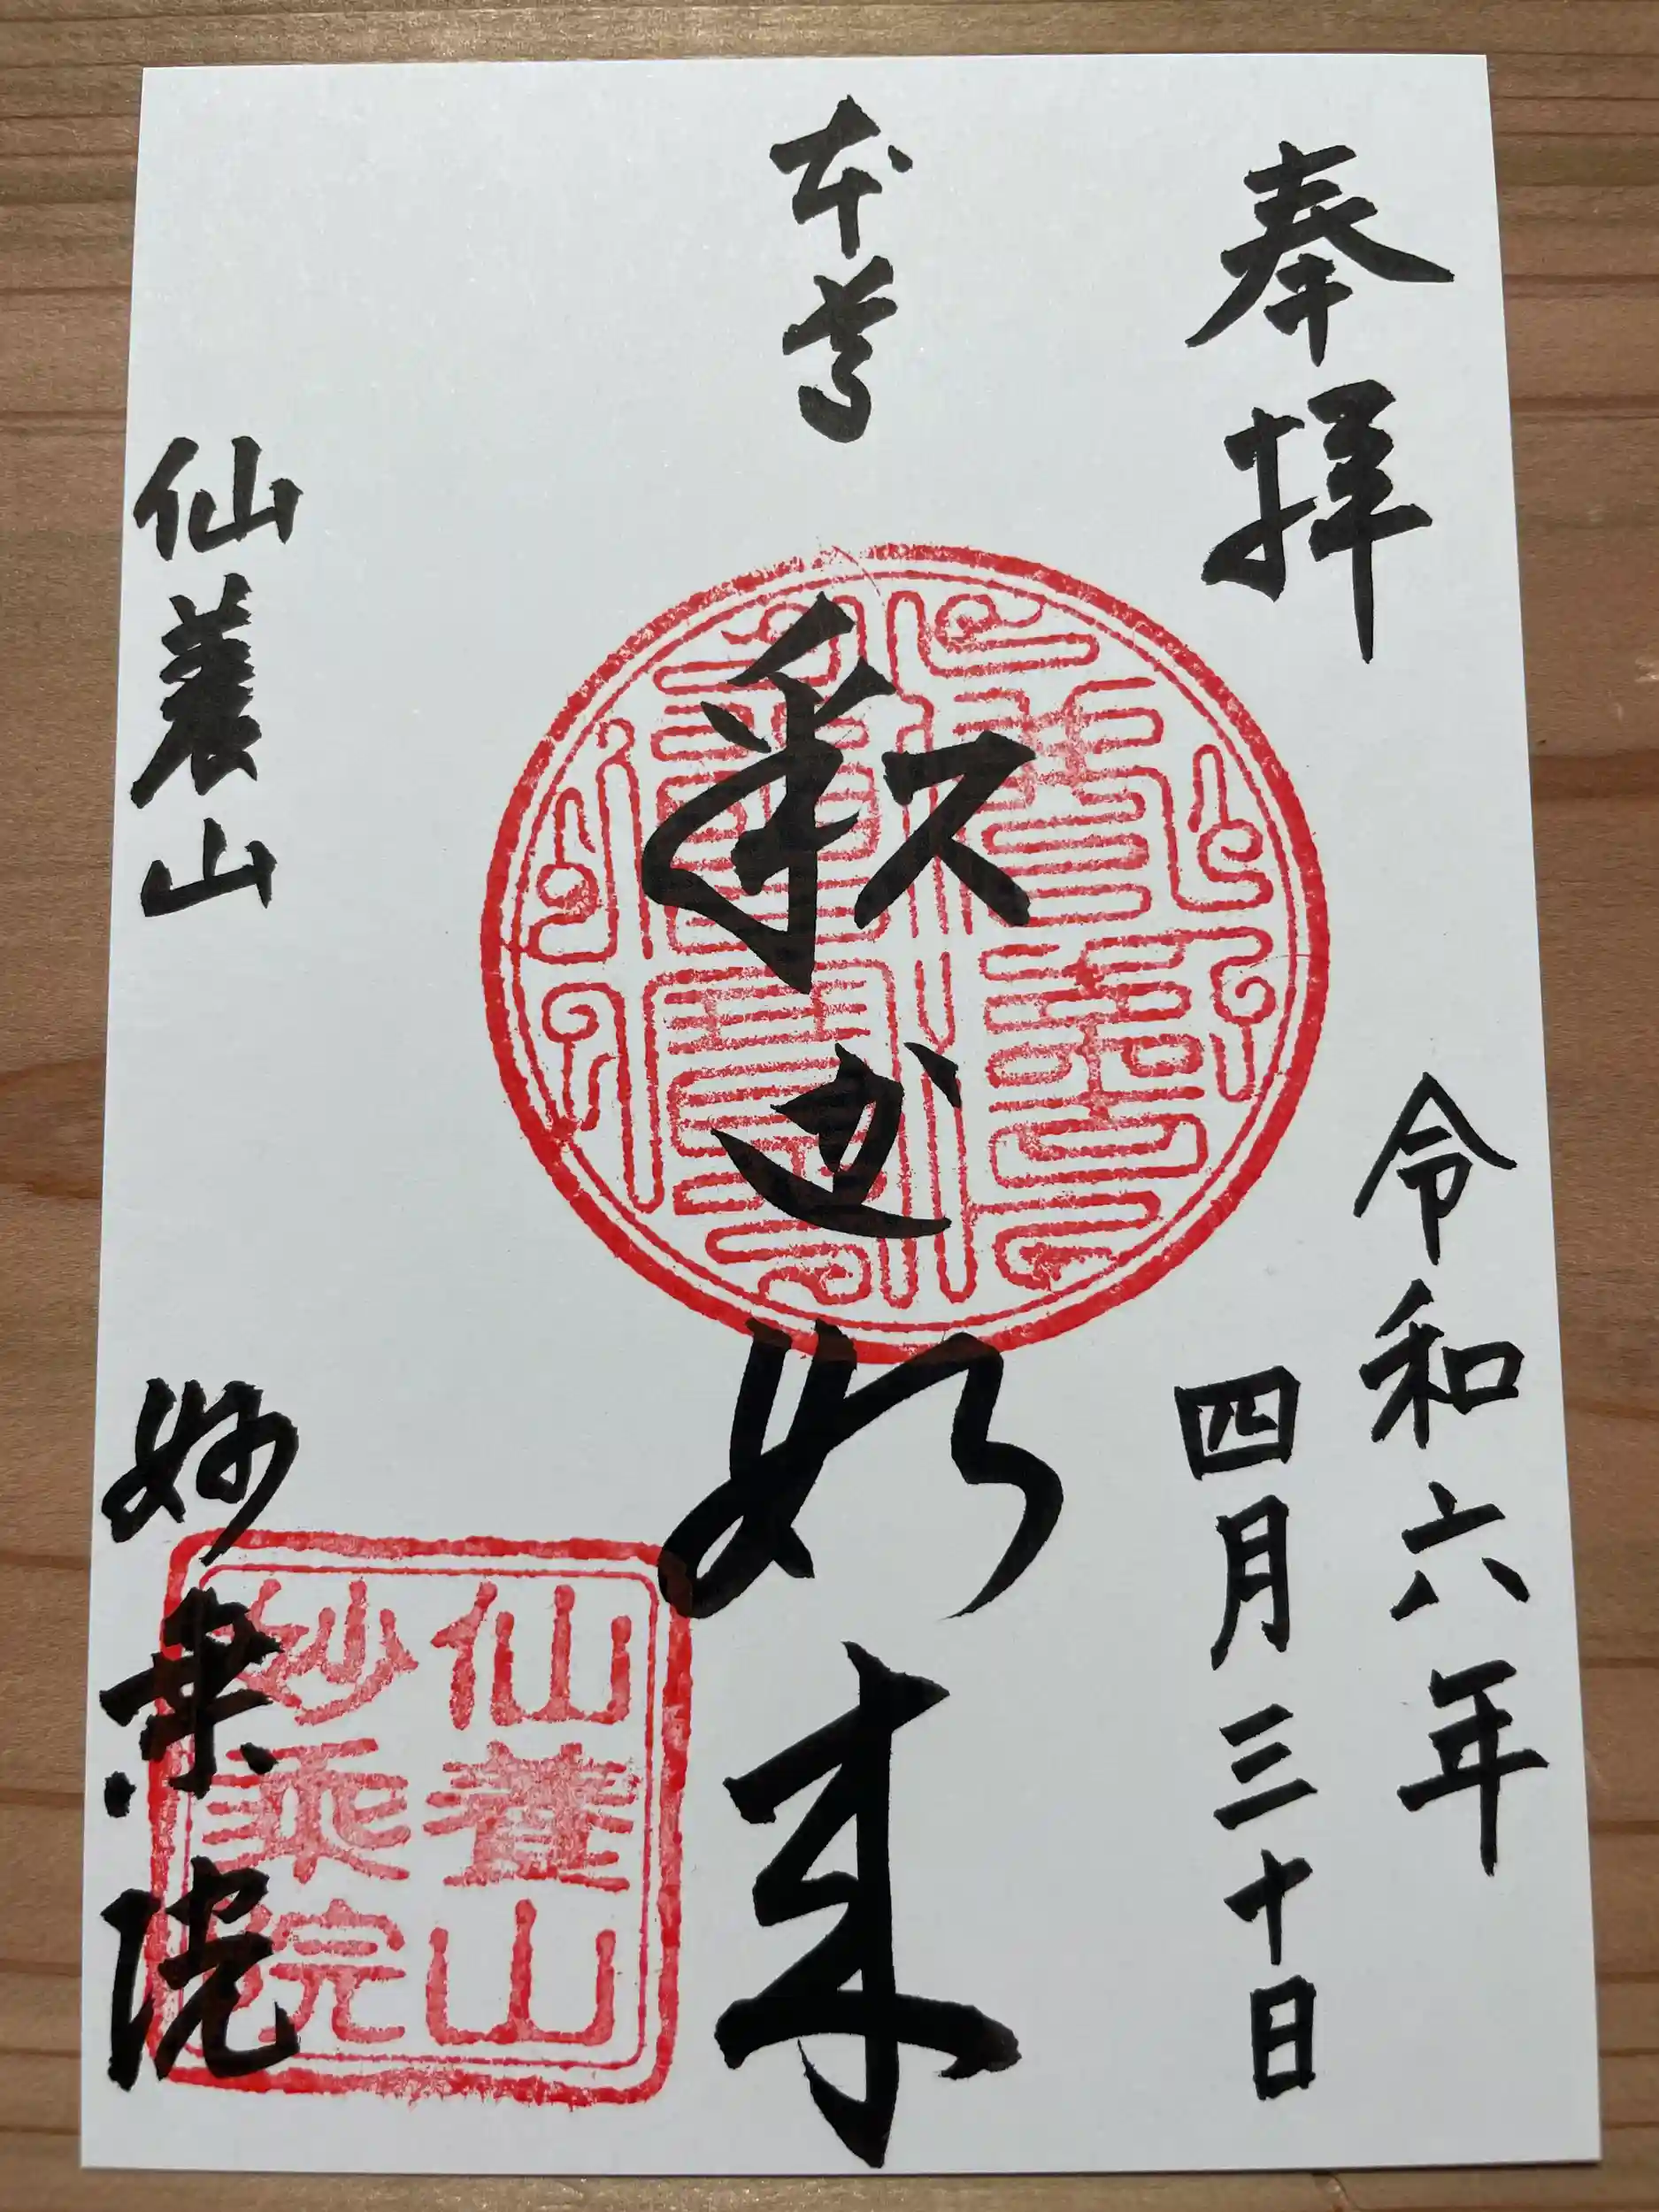 奉拝
令和六年
四月三十日
本尊
釈迦如来
仙養山
妙乗院
仙養山
妙乗院